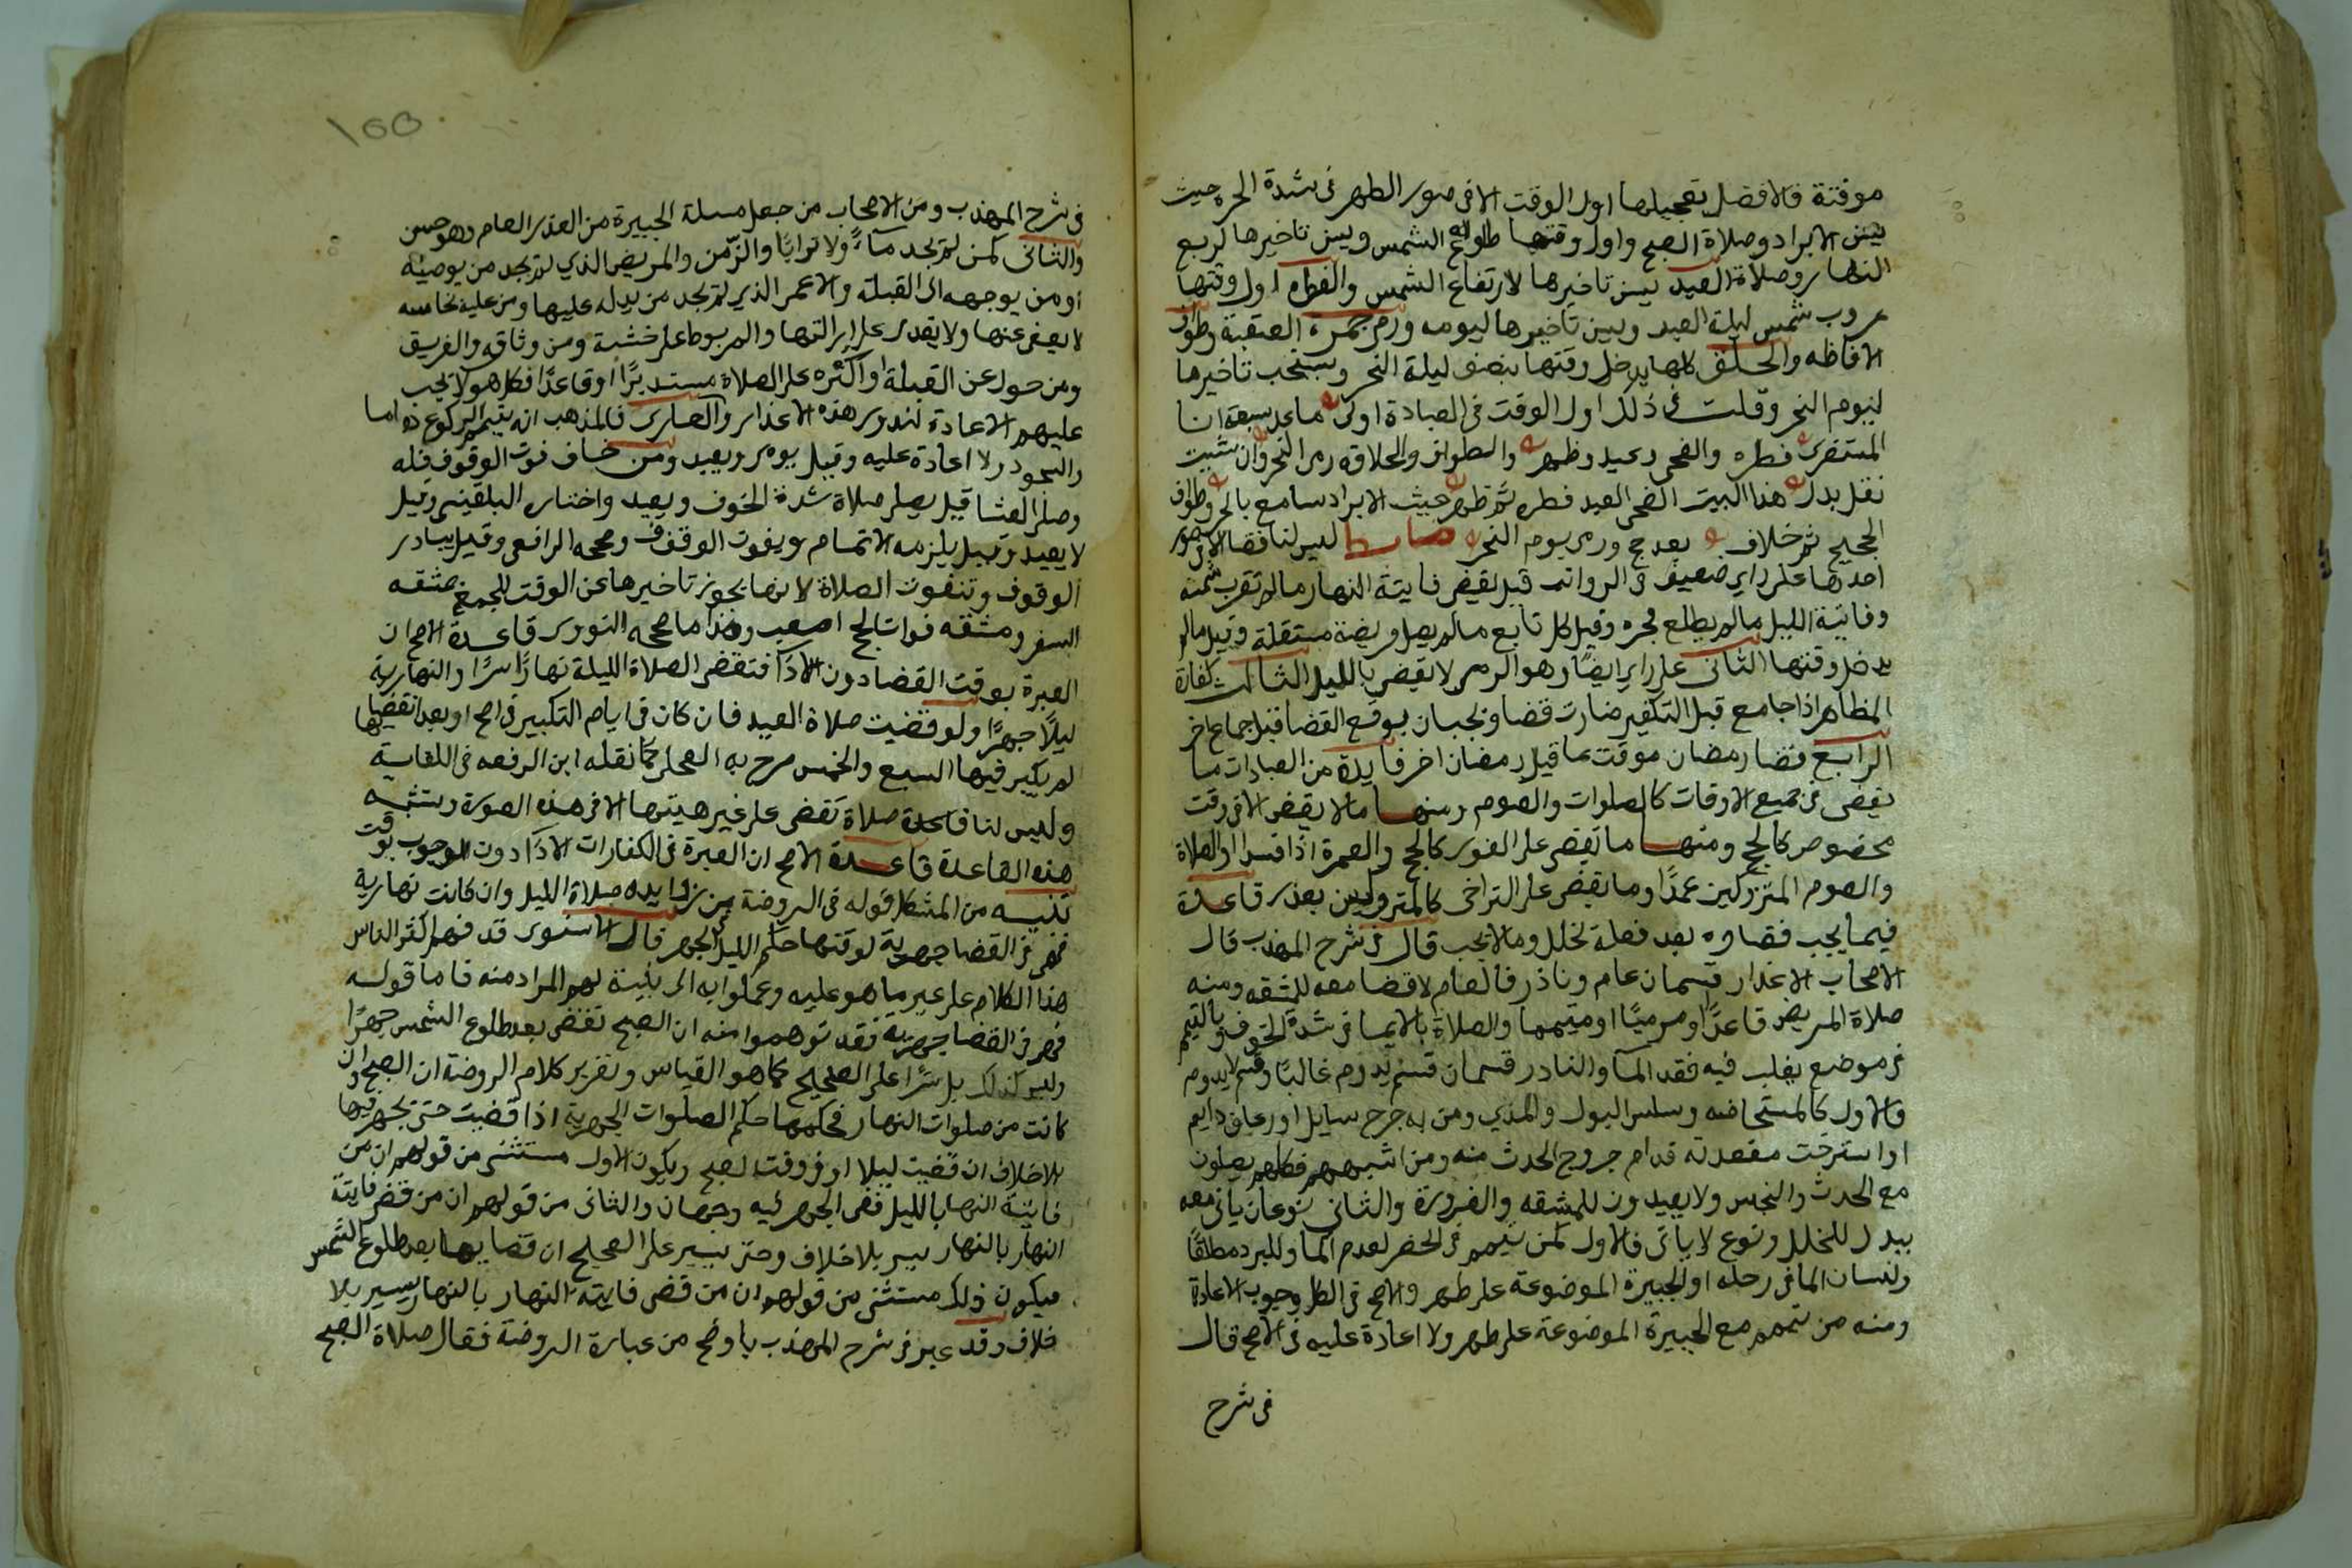 موقتة فالافضل تعجيلها اول الوقت الا في صور الظهر في شدة الحر حيث
يسن الابراد وصلاة الضحى واول وقتها طلوع الشمس ويسن تاخيرها لربع
النهار وصلاة العيد يسن تاخيرها لارتفاع الشمس والفطرة اول وقتها
غروب شمس ليلة العيد ويسن تاخيرها ليومه ورمي جمرة العقبة وطواف
الافاظه والحلق كلها يدخل وقتها بنصف ليلة النحر ويستحب تاخيرها
ليوم النحر وقلت في ذلك اول الوقت في العبادة اولى ما عدا سبعة انا
المستقري فطره والضحى وعيد وظهر والطواف والحلاقه رمي النحر وان شئت
نقل بدل هذا البيت الضحى العيد فطره ثم ظهر حيث الابراد سامع بالحر وطواف
الحجيج ثم خلاف بعد حج ورمي يوم النحر ضابط ليس لنا قضا الا في صور
احدها على راي ضعيف في الرواتب قيل تقضى فايتة النهار مالم تغرب شمسه
وفايتة الليل مالم يطلع فجره وقيل كل تابع مالم يصل فريضة مستقلة وقيل مالم
يدخل وقتها الثاني على راي ايضا وهو الرمي لا يقضى بالليل الثالث كفارة
المظاهر اذا جامع قبل التكفير صارت قضا ويجبان يوقع القضا قبل جماع اخر
الرابع قضا رمضان موقت بما قبل رمضان اخر فايدة من العبادات ما
يقضى في جميع الاوقات كالصلوات والصوم ومنها مالا يقضى الا في وقت
مخصوص كالحج ومنها ما تقضى على الفور كالحج والعمرة اذا فسدا والصلاة
والصوم المتروكين عمدًا وما تقضى على التراخى كالمتروكين بعذر قاعدة
فيما يجب قضاوه بعد فعلة لخلل وما لا يجب قال في شرح المهذب قال
الاصحاب الاعذار قسمان عام ونادر فالعام لا قضا معه للمشقه ومنه
صلاة المريض قاعدًا او موميًا او متيمما والصلاة بالايما في شدة الخوف وبالتيمم
في موضع يغلب فيه فقد الما والنادر قسمان قسم يدوم غالبًا وقسم لا يدوم
فالاول كالمستحاضه وسلس البول والمذي ومن به جرح سايل او رعاف دايم
او استرخت مقعدته فدام خروج الحدث منه ومن اشبههم فكلهم يصلون
مع الحدث والنجس ولا يعيدون للمشقه والضرورة والثاني نوعان ياتي معه
ببدل للخلل ونوع لا ياتى فالاول كمن تيمم في الحضر لعدم الما وللبرد مطلقًا
ولنسان الما في رحله او الجبيرة الموضوعة على طهر والاصح في الكل وجوب الاعادة
ومنه من تيمم مع الجبيرة الموضوعة على طهر ولا اعادة عليه في الاصح قال
في شرح
١٥٥
في شرح المهذب ومن الاصحاب من جعل مسلة الجبيرة من العذر العام وهو حسن
والثاني كمن لم يجد ماءً ولا ترابًا والزّمن والمريض الذي لم يجد من يوضيه
او من يوجهه الى القبلة والاعمى الذي لم يجد من يدله عليها ومن عليه نجاسه
لا يعفى عنها ولا يقدر على ازالتها والمربوط على خشبة ومن وثاقه والغريق
ومن حول عن القبلة او اكره على الصلاة مستدبرًا او قاعدًا فكل هولا تجب
عليهم الاعادة لندور هذه الاعذار والعاري فالمذهب انه يتيم الركوع اما
والسجود ولا اعادة عليه وقيل يومي ويعيد ومن خاف فوت الوقوف قبله
وصلى العشا قيل يصلي صلاة شدة الخوف ويعيد واختاره البلقيني وقيل
لا يعيد وقيل يلزمه الاتمام ويفوت الوقوف وصححه الرافعي وقيل يبادر
الوقوف وتفوت الصلاة لانها يجوز تاخيرها عن الوقت للجمع بمشقه
السفر ومشقه فوات الحج اصعب وهذا ما صححه النووي قاعدة الاصح ان
العبرة بوقت القضا دون الادا فتقضى الصلاة الليلة نهارًا سرًا والنهارية
ليلًا جهرًا ولو قضيت صلاة العيد فان كان في ايام التكبير في اصح او بعد انقضايها
لم يكبر فيها السبع والخمس صرح به العجلي كما نقله ابن الرفعه في الكفاية
وليس لنا قاعدة صلاة تقضى على غير هيتها الا في هذه الصورة ويستثنى
هذه القاعدة قاعدة الاصح ان العبرة في الكفارات الادا دون الوجوب بوقت
تنبيه من المشكل قوله في الروضة من زوايده صلاة الليل وان كانت نهارية
فهي في القضا جهرية لوقتها حكم الليل الجهر قال الاسنوي قد فهم اكثر الناس
هذا الكلام على غير ما هو عليه وعملوا به الى بنية لهم المراد منه فاما قوله
فهي في القضا جهرية فقد توهموا منه ان الصبح تقضى بعد طلوع الشمس جهرًا
وليس كذلك بل سرًا على الصحيح كما هو القياس وتقرير كلام الروضة ان الصبح وان
كانت من صلوات النهار فحكمها حكم الصلوات الجهرية اذا قضيت حتى يجهر فيها
بلا خلاف ان قضيت ليلا او في وقت الصبح ويكون الاول مستثنى من قولهم ان من
فايتة النها بالليل ففي الجهر فيه وجهان والثاني من قولهم ان من قضى فايتة
النهار بالنهار يسر بلا خلاف وحتى يسر على الصحيح ان قضايها بعد طلوع الشمس
فيكون ذلك مستثنى من قولهم ان من قضى فايتة النهار بالنهار يسير بلا
خلاف وقد عبر في شرح المهذب باوضح من عبارة الروضة فقال صلاة الصبح